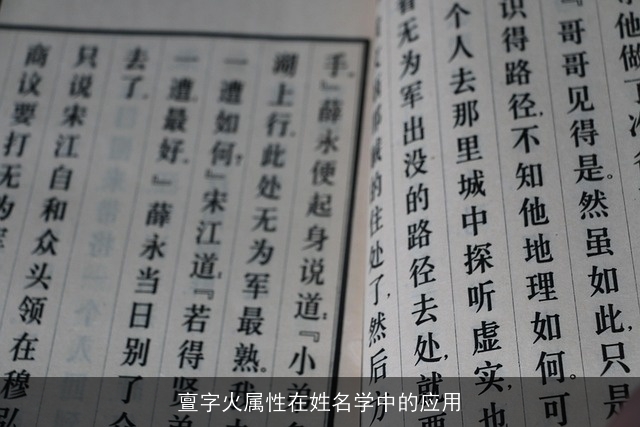 他做了
『哥哥见得是。然虽如此，只是
识得路径，不知他地理如何。可
个人去那里城中探听虚实，也
看无为军出没的路径去处，就要
的住处了，然后方
手。』薛永便起身说道：『小弟多
湖上行，此处无为军最熟。我去
一遭如何？』宋江道：『若得贤弟
一遭，最好。』薛永当日别了众
去了。
只说宋江自和众头领在穆弘
商议要打无为军
亶字火属性在姓名学中的应用